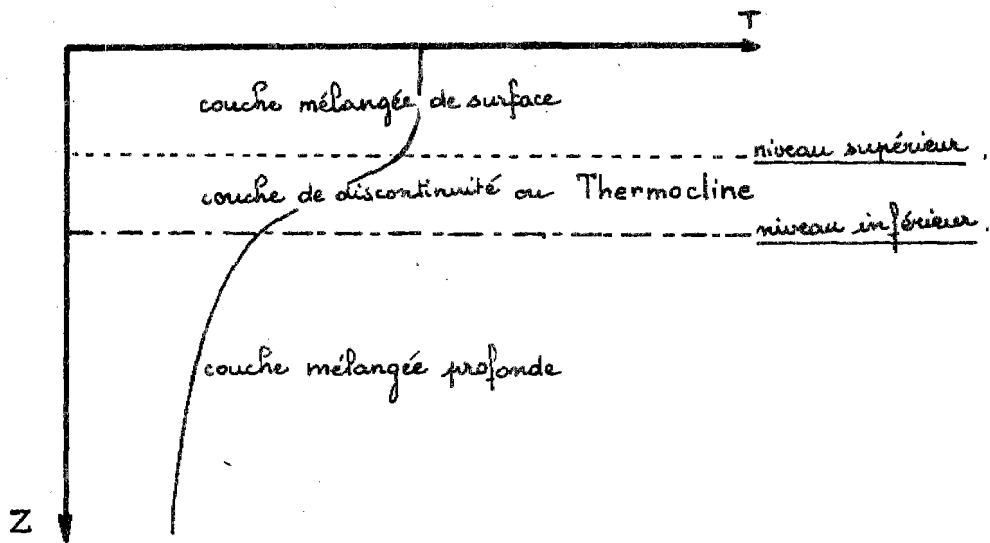 T
couche mélangée de surface
niveau supérieur.
couche de discontinuité ou Thermocline
niveau inférieur.
couche mélangée profonde
Z